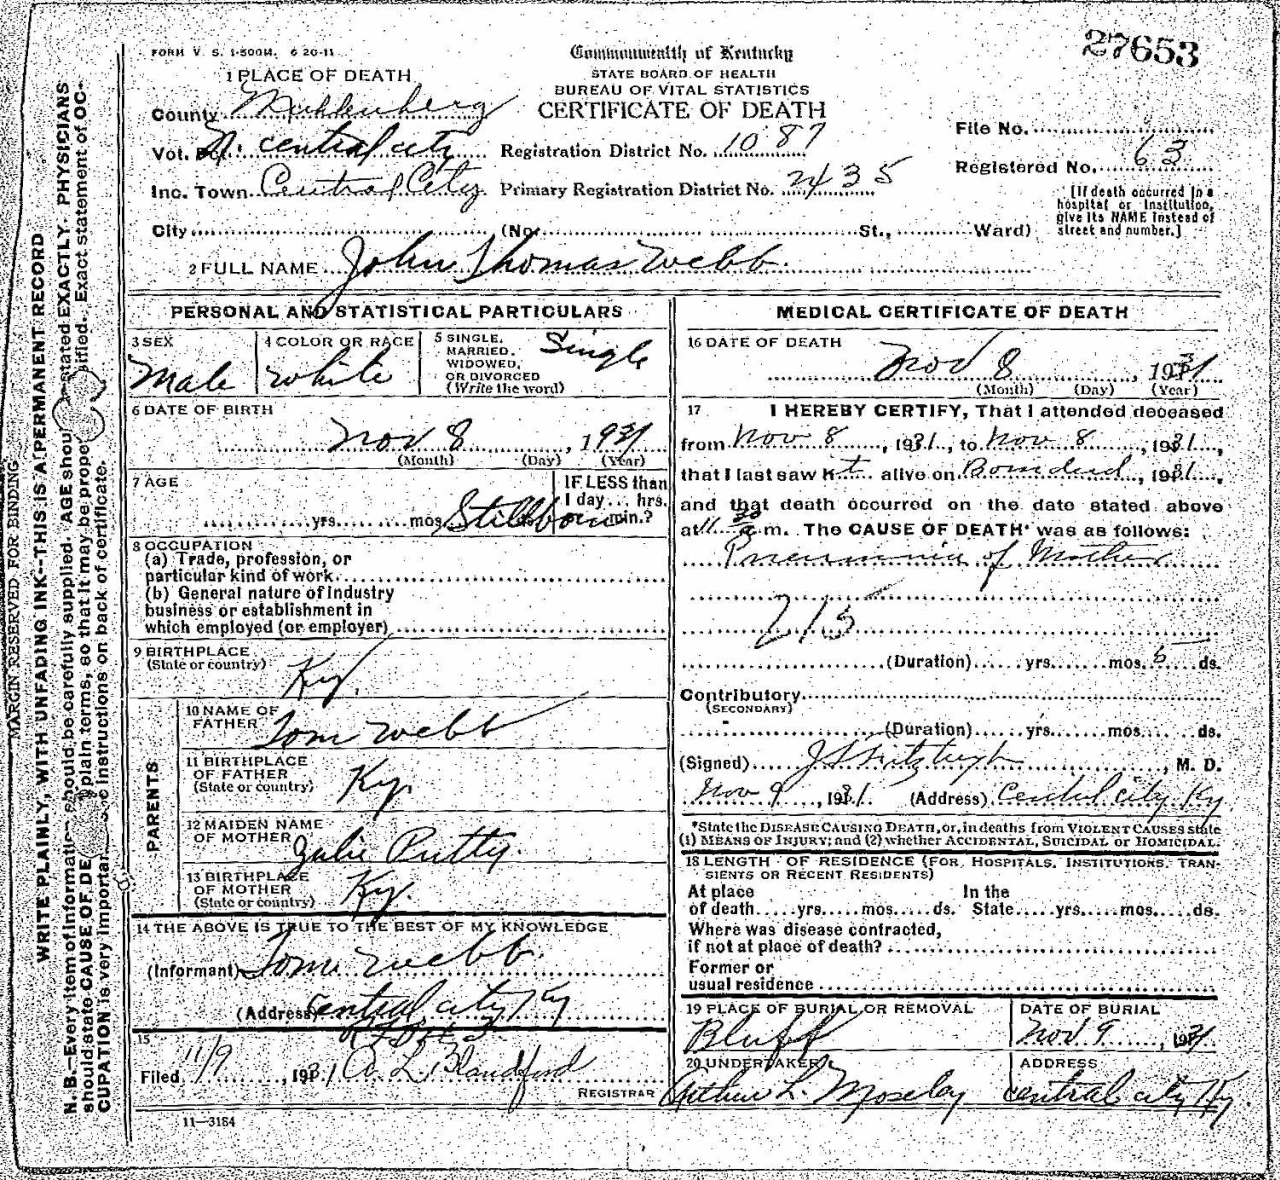 27653
FORM V. S. 1-500M. 6 20-11
Commonwealth of Kentucky
STATE BOARD OF HEALTH
BUREAU OF VITAL STATISTICS
CERTIFICATE OF DEATH
1 PLACE OF DEATH
County Muhlenberg
Vot. central city
Inc. Town Central City
City (No. St., Ward)
Registration District No. 1087
Primary Registration District No. 2435
File No.
Registered No. 63
[If death occurred in a
hospital or institution,
give its NAME instead of
street and number.]
2 FULL NAME John Thomas Webb.
PERSONAL AND STATISTICAL PARTICULARS
3 SEX
Male
4 COLOR OR RACE
White
5 SINGLE,
MARRIED,
WIDOWED,
OR DIVORCED
(Write the word)
Single
6 DATE OF BIRTH
Nov 8, 1931
(Month) (Day) (Year)
7 AGE
yrs. mos. Stillborn
IF LESS than
1 day... hrs.
min.?
8 OCCUPATION
(a) Trade, profession, or
particular kind of work
(b) General nature of Industry
business or establishment in
which employed (or employer)
9 BIRTHPLACE
(State or country)
Ky.
PARENTS
10 NAME OF
FATHER
Tom Webb
11 BIRTHPLACE
OF FATHER
(State or country)
Ky.
12 MAIDEN NAME
OF MOTHER
Julie Putty.
13 BIRTHPLACE
OF MOTHER
(State or country)
Ky.
14 THE ABOVE IS TRUE TO THE BEST OF MY KNOWLEDGE
(Informant) Tom Webb.
(Address) Central city Ky
15
Filed 11/9, 1931 A. L. Blandford
REGISTRAR
11—3184
MEDICAL CERTIFICATE OF DEATH
16 DATE OF DEATH
Nov 8, 1931
(Month) (Day) (Year)
17 I HEREBY CERTIFY, That I attended deceased
from Nov 8, 1931, to Nov 8, 1931,
that I last saw h it alive on Born dead, 1931,
and that death occurred on the date stated above
at 11 30 a.m. The CAUSE OF DEATH* was as follows:
Pneumonia of Mother
215
(Duration) yrs. mos. 5 ds.
Contributory
(SECONDARY)
(Duration) yrs. mos. ds.
(Signed) J Fitzhugh, M. D.
Nov 9, 1931. (Address) Central city Ky
*State the DISEASE CAUSING DEATH, or, in deaths from VIOLENT CAUSES state
(1) MEANS OF INJURY; and (2) whether ACCIDENTAL, SUICIDAL or HOMICIDAL.
18 LENGTH OF RESIDENCE (FOR HOSPITALS, INSTITUTIONS, TRAN-
SIENTS OR RECENT RESIDENTS)
At place In the
of death yrs. mos. ds. State yrs. mos. ds.
Where was disease contracted,
if not at place of death?
Former or
usual residence
19 PLACE OF BURIAL OR REMOVAL
Bluff
DATE OF BURIAL
Nov 9, 1931
20 UNDERTAKER
Arthur L. Moseley
ADDRESS
central city Ky.
MARGIN RESERVED FOR BINDING
WRITE PLAINLY, WITH UNFADING INK--THIS IS A PERMANENT RECORD
N. B.—Every item of information should be carefully supplied. AGE should be stated EXACTLY. PHYSICIANS
should state CAUSE OF DE plain terms, so that it may be prope sified. Exact statement of OC-
CUPATION is very important. instructions on back of certificate.